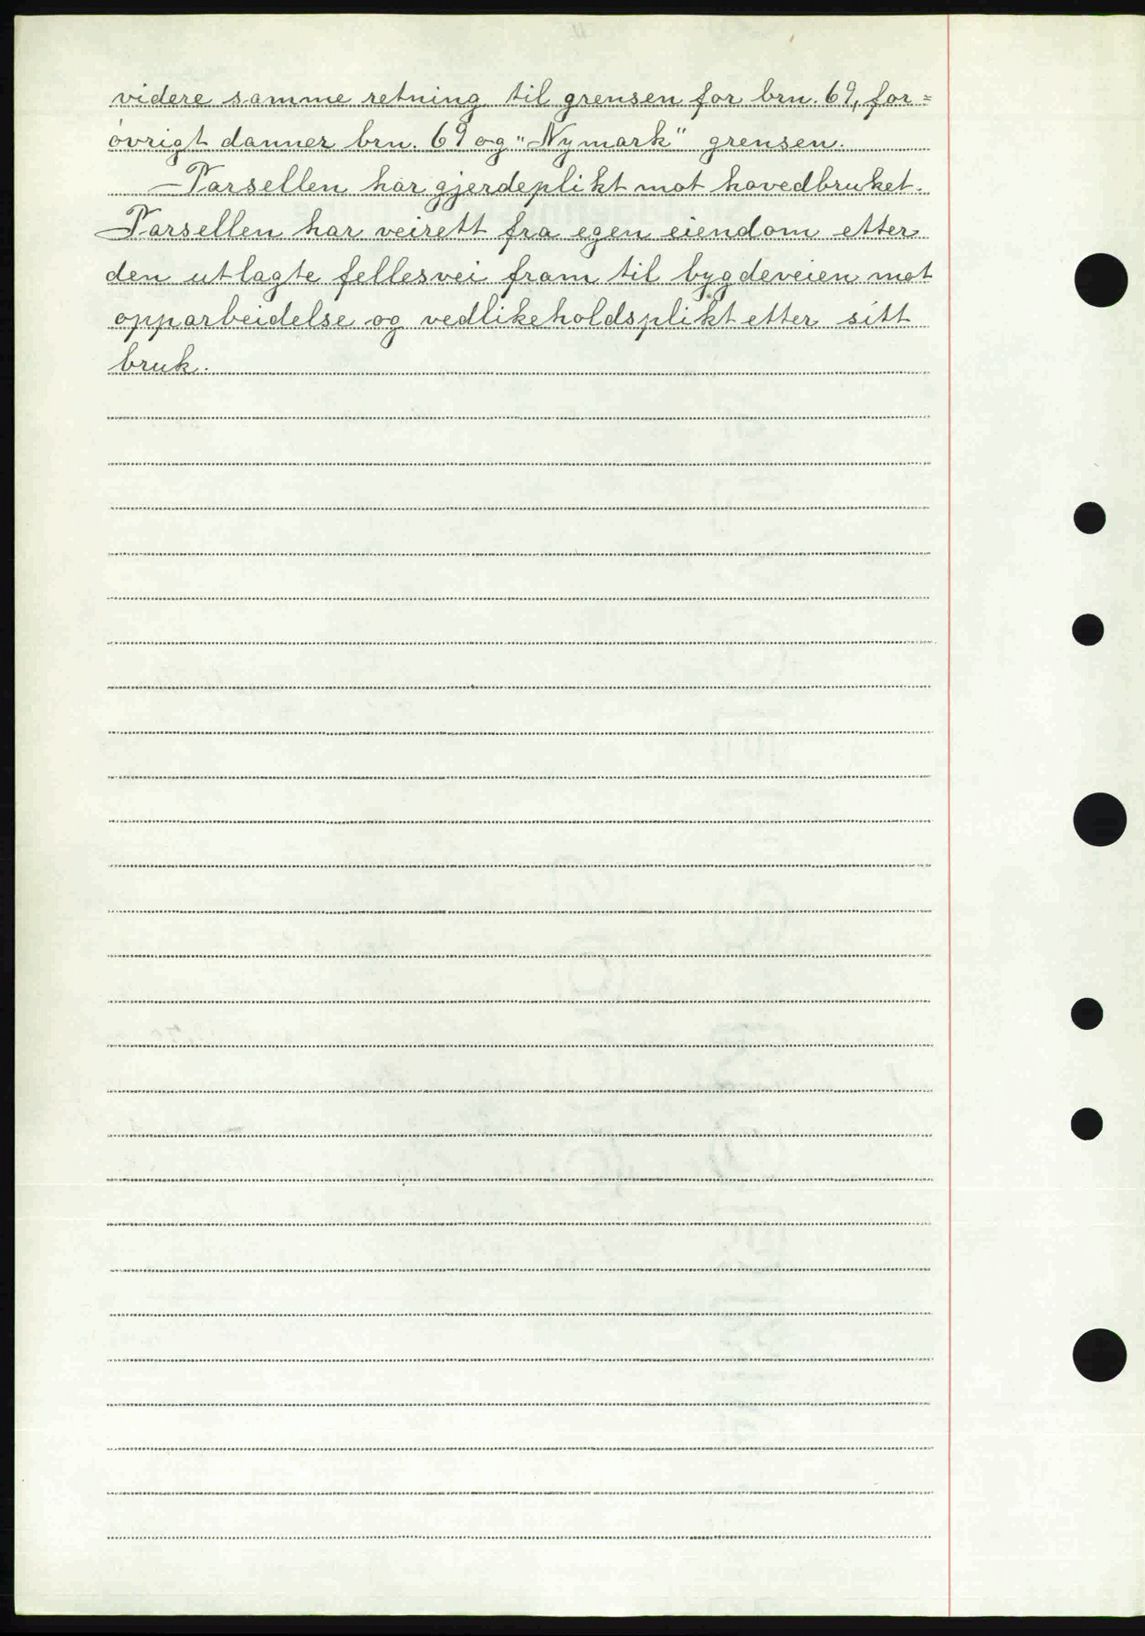 videre samme retning til grensen for brn. 69, for=
øvrigt danner brn. 69 og "Nymark" grensen.
Parsellen har gjerdeplikt mot hovedbruket.
Parsellen har veirett fra egen eiendom etter
den utlagte fellesvei fram til bygdeveien mot
opparbeidelse og vedlikeholdsplikt etter sitt
bruk.